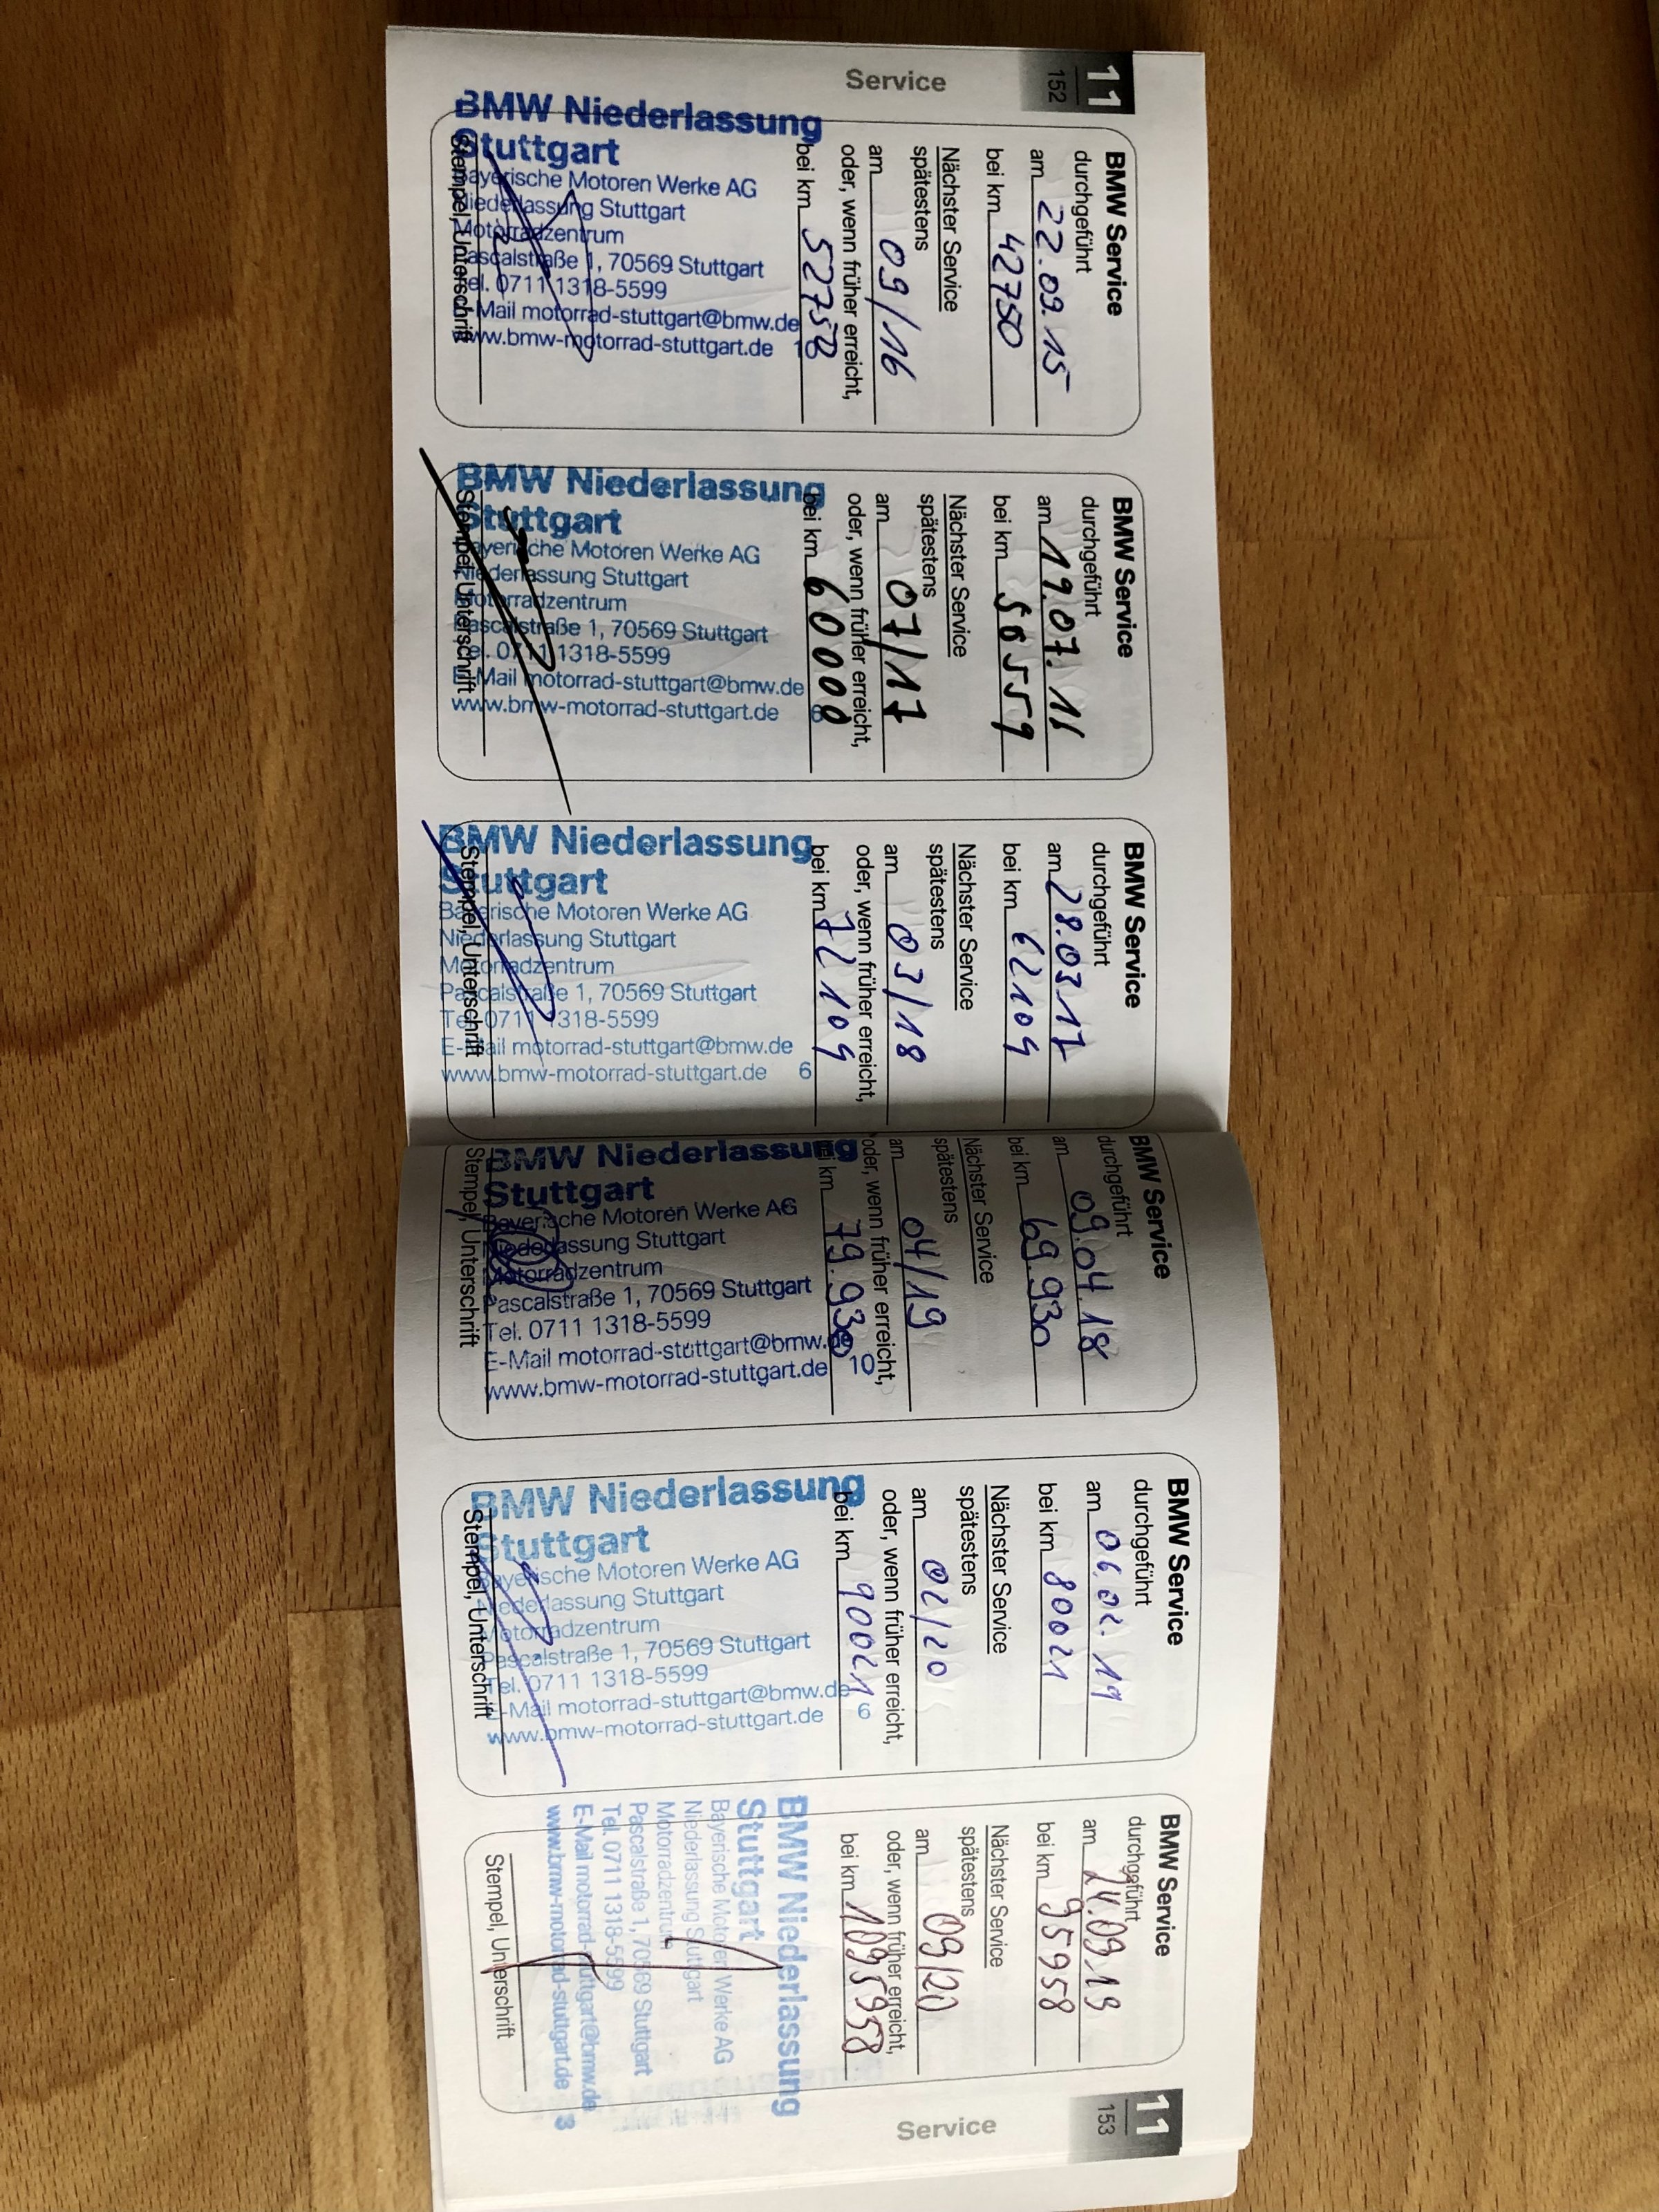 11
152
Service
BMW Service
durchgeführt
am 22.09.15
bei km 42750
Nächster Service
spätestens
am 09/16
oder, wenn früher erreicht,
bei km 52750
BMW Niederlassung
Stuttgart
Bayerische Motoren Werke AG
Niederlassung Stuttgart
Motorradzentrum
Pascalstraße 1, 70569 Stuttgart
Tel. 0711 1318-5599
E-Mail motorrad-stuttgart@bmw.de
www.bmw-motorrad-stuttgart.de
Stempel, Unterschrift
BMW Service
durchgeführt
am 19.07.16
bei km
Nächster Service
spätestens
am 07/17
oder, wenn früher erreicht,
bei km 60000
BMW Niederlassung
Stuttgart
Bayerische Motoren Werke AG
Niederlassung Stuttgart
Motorradzentrum
Pascalstraße 1, 70569 Stuttgart
Tel. 0711 1318-5599
E-Mail motorrad-stuttgart@bmw.de
www.bmw-motorrad-stuttgart.de 6
Stempel, Unterschrift
BMW Service
durchgeführt
am 28.03.17
bei km 62109
Nächster Service
spätestens
am 03/18
oder, wenn früher erreicht,
bei km 72109
BMW Niederlassung
Stuttgart
Bayerische Motoren Werke AG
Niederlassung Stuttgart
Motorradzentrum
Pascalstraße 1, 70569 Stuttgart
Tel. 0711 1318-5599
E-Mail motorrad-stuttgart@bmw.de
www.bmw-motorrad-stuttgart.de 6
Stempel, Unterschrift
BMW Service
durchgeführt
am 09.04.18
bei km 69.930
Nächster Service
spätestens
am 04/19
oder, wenn früher erreicht,
bei km 79.930
BMW Niederlassung
Stuttgart
Bayerische Motoren Werke AG
Niederlassung Stuttgart
Motorradzentrum
Pascalstraße 1, 70569 Stuttgart
Tel. 0711 1318-5599
E-Mail motorrad-stuttgart@bmw.de
www.bmw-motorrad-stuttgart.de 10
Stempel, Unterschrift
BMW Service
durchgeführt
am 06.02.19
bei km 80021
Nächster Service
spätestens
am 02/20
oder, wenn früher erreicht,
bei km 90021
BMW Niederlassung
Stuttgart
Bayerische Motoren Werke AG
Niederlassung Stuttgart
Motorradzentrum
Pascalstraße 1, 70569 Stuttgart
Tel. 0711 1318-5599
E-Mail motorrad-stuttgart@bmw.de
www.bmw-motorrad-stuttgart.de 6
Stempel, Unterschrift
BMW Service
durchgeführt
am 24.09.19
bei km 95958
Nächster Service
spätestens
am 09/20
oder, wenn früher erreicht,
bei km 1095958
BMW Niederlassung
Stuttgart
Bayerische Motoren Werke AG
Niederlassung Stuttgart
Motorradzentrum
Pascalstraße 1, 70569 Stuttgart
Tel. 0711 1318-5599
E-Mail motorrad-stuttgart@bmw.de
www.bmw-motorrad-stuttgart.de 3
Stempel, Unterschrift
Service
11
153